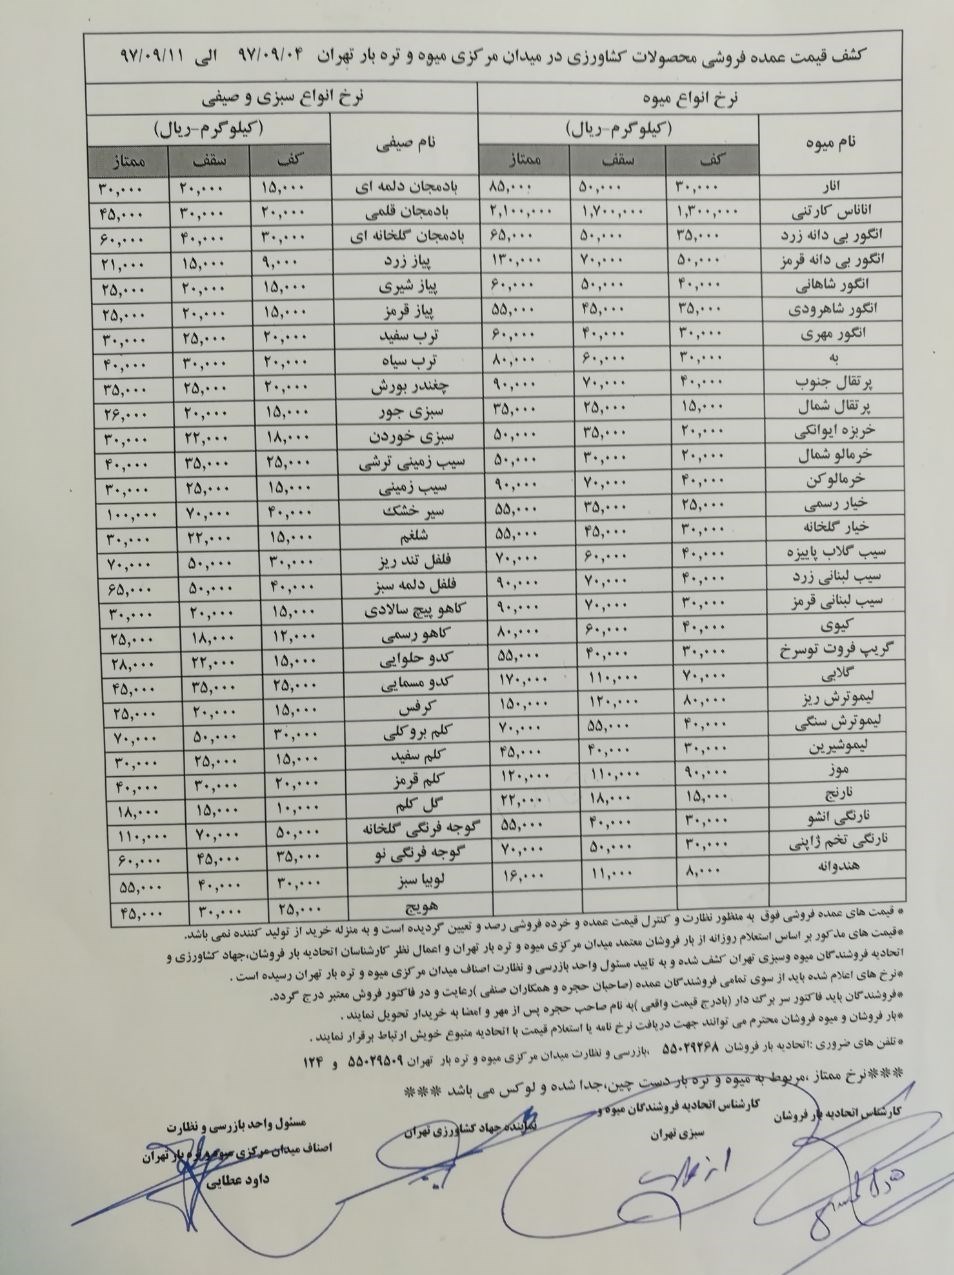 کشف قیمت عمده فروشی محصولات کشاورزی در میدان مرکزی میوه و تره بار تهران ۹۷/۰۹/۰۴ الی ۹۷/۰۹/۱۱
نرخ انواع میوه نرخ انواع سبزی و صیفی
نام میوه (کیلوگرم-ریال) نام صیفی (کیلوگرم-ریال)
کف سقف ممتاز کف سقف ممتاز
انار ۳۰,۰۰۰ ۵۰,۰۰۰ ۸۵,۰۰۰ بادمجان دلمه ای ۱۵,۰۰۰ ۲۰,۰۰۰ ۳۰,۰۰۰
اناناس کارتنی ۱,۳۰۰,۰۰۰ ۱,۷۰۰,۰۰۰ ۲,۱۰۰,۰۰۰ بادمجان قلمی ۲۰,۰۰۰ ۳۰,۰۰۰ ۴۵,۰۰۰
انگور بی دانه زرد ۳۵,۰۰۰ ۵۰,۰۰۰ ۶۵,۰۰۰ بادمجان گلخانه ای ۳۰,۰۰۰ ۴۰,۰۰۰ ۶۰,۰۰۰
انگور بی دانه قرمز ۵۰,۰۰۰ ۷۰,۰۰۰ ۱۳۰,۰۰۰ پیاز زرد ۹,۰۰۰ ۱۵,۰۰۰ ۲۱,۰۰۰
انگور شاهانی ۴۰,۰۰۰ ۵۰,۰۰۰ ۶۰,۰۰۰ پیاز شیری ۱۵,۰۰۰ ۲۰,۰۰۰ ۲۵,۰۰۰
انگور شاهرودی ۳۵,۰۰۰ ۴۵,۰۰۰ ۵۵,۰۰۰ پیاز قرمز ۱۵,۰۰۰ ۲۰,۰۰۰ ۲۵,۰۰۰
انگور مهری ۳۰,۰۰۰ ۴۰,۰۰۰ ۶۰,۰۰۰ ترب سفید ۲۰,۰۰۰ ۲۵,۰۰۰ ۳۰,۰۰۰
به ۳۰,۰۰۰ ۶۰,۰۰۰ ۸۰,۰۰۰ ترب سیاه ۲۰,۰۰۰ ۳۰,۰۰۰ ۴۰,۰۰۰
پرتقال جنوب ۴۰,۰۰۰ ۷۰,۰۰۰ ۹۰,۰۰۰ چغندر بورش ۲۰,۰۰۰ ۲۵,۰۰۰ ۳۵,۰۰۰
پرتقال شمال ۱۵,۰۰۰ ۲۵,۰۰۰ ۳۵,۰۰۰ سبزی جور ۱۵,۰۰۰ ۲۰,۰۰۰ ۲۶,۰۰۰
خربزه ایوانکی ۲۰,۰۰۰ ۳۵,۰۰۰ ۵۰,۰۰۰ سبزی خوردن ۱۸,۰۰۰ ۲۲,۰۰۰ ۳۰,۰۰۰
خرمالو شمال ۲۰,۰۰۰ ۳۰,۰۰۰ ۵۰,۰۰۰ سیب زمینی ترشی ۲۵,۰۰۰ ۳۵,۰۰۰ ۴۰,۰۰۰
خرمالوکن ۴۰,۰۰۰ ۷۰,۰۰۰ ۹۰,۰۰۰ سیب زمینی ۱۵,۰۰۰ ۲۵,۰۰۰ ۳۰,۰۰۰
خیار رسمی ۲۵,۰۰۰ ۳۵,۰۰۰ ۵۵,۰۰۰ سیر خشک ۴۰,۰۰۰ ۷۰,۰۰۰ ۱۰۰,۰۰۰
خیار گلخانه ۳۰,۰۰۰ ۴۵,۰۰۰ ۵۵,۰۰۰ شلغم ۱۵,۰۰۰ ۲۲,۰۰۰ ۳۰,۰۰۰
سیب گلاب پاییزه ۴۰,۰۰۰ ۶۰,۰۰۰ ۷۰,۰۰۰ فلفل تند ریز ۳۰,۰۰۰ ۵۰,۰۰۰ ۷۰,۰۰۰
سیب لبنانی زرد ۴۰,۰۰۰ ۷۰,۰۰۰ ۹۰,۰۰۰ فلفل دلمه سبز ۴۰,۰۰۰ ۵۰,۰۰۰ ۶۵,۰۰۰
سیب لبنانی قرمز ۳۰,۰۰۰ ۷۰,۰۰۰ ۹۰,۰۰۰ کاهو پیچ سالادی ۱۵,۰۰۰ ۲۰,۰۰۰ ۳۰,۰۰۰
کیوی ۴۰,۰۰۰ ۶۰,۰۰۰ ۸۰,۰۰۰ کاهو رسمی ۱۲,۰۰۰ ۱۸,۰۰۰ ۲۵,۰۰۰
گریپ فروت توسرخ ۳۰,۰۰۰ ۴۰,۰۰۰ ۵۵,۰۰۰ کدو حلوایی ۱۵,۰۰۰ ۲۲,۰۰۰ ۲۸,۰۰۰
گلابی ۷۰,۰۰۰ ۱۱۰,۰۰۰ ۱۷۰,۰۰۰ کدو مسمایی ۲۵,۰۰۰ ۳۵,۰۰۰ ۴۵,۰۰۰
لیموترش ریز ۸۰,۰۰۰ ۱۲۰,۰۰۰ ۱۵۰,۰۰۰ کرفس ۱۵,۰۰۰ ۲۰,۰۰۰ ۲۵,۰۰۰
لیموترش سنگی ۴۰,۰۰۰ ۵۵,۰۰۰ ۷۰,۰۰۰ کلم بروکلی ۳۰,۰۰۰ ۵۰,۰۰۰ ۷۰,۰۰۰
لیموشیرین ۳۰,۰۰۰ ۴۰,۰۰۰ ۴۵,۰۰۰ کلم سفید ۱۵,۰۰۰ ۲۵,۰۰۰ ۳۰,۰۰۰
موز ۹۰,۰۰۰ ۱۱۰,۰۰۰ ۱۲۰,۰۰۰ کلم قرمز ۲۰,۰۰۰ ۳۰,۰۰۰ ۴۰,۰۰۰
نارنج ۱۵,۰۰۰ ۱۸,۰۰۰ ۲۲,۰۰۰ گل کلم ۱۰,۰۰۰ ۱۵,۰۰۰ ۱۸,۰۰۰
نارنگی انشو ۳۰,۰۰۰ ۴۰,۰۰۰ ۵۵,۰۰۰ گوجه فرنگی گلخانه ۵۰,۰۰۰ ۷۰,۰۰۰ ۱۱۰,۰۰۰
نارنگی تخم ژاپنی ۳۰,۰۰۰ ۵۰,۰۰۰ ۷۰,۰۰۰ گوجه فرنگی نو ۳۵,۰۰۰ ۴۵,۰۰۰ ۶۰,۰۰۰
هندوانه ۸,۰۰۰ ۱۱,۰۰۰ ۱۶,۰۰۰ لوبیا سبز ۳۰,۰۰۰ ۴۰,۰۰۰ ۵۵,۰۰۰
هویج ۲۵,۰۰۰ ۳۰,۰۰۰ ۴۵,۰۰۰
* قیمت های عمده فروشی فوق به منظور نظارت و کنترل قیمت عمده و خرده فروشی رصد و تعیین گردیده است و به منزله خرید از تولید کننده نمی باشد.
*قیمت های مذکور بر اساس استعلام روزانه از بار فروشان معتمد میدان مرکزی میوه و تره بار تهران و اعمال نظر کارشناسان اتحادیه بار فروشان،جهاد کشاورزی و
اتحادیه فروشندگان میوه وسبزی تهران کشف شده و به تایید مسئول واحد بازرسی و نظارت اصناف میدان مرکزی میوه و تره بار تهران رسیده است .
*نرخ های اعلام شده باید از سوی تمامی فروشندگان عمده (صاحبان حجره و همکاران صنفی )رعایت و در فاکتور فروش معتبر درج گردد.
*فروشندگان باید فاکتور سر برگ دار (بادرج قیمت واقعی )به نام صاحب حجره پس از مهر و امضا به خریدار تحویل نمایند .
*بار فروشان و میوه فروشان محترم می توانند جهت دریافت نرخ نامه یا استعلام قیمت با اتحادیه متبوع خویش ارتباط برقرار نمایند .
*تلفن های ضروری :اتحادیه بار فروشان ۵۵۰۲۹۲۶۸ ،بازرسی و نظارت میدان مرکزی میوه و تره بار تهران ۵۵۰۲۹۵۰۹ و ۱۲۴
***نرخ ممتاز ،مربوط به میوه و تره بار دست چین،جدا شده و لوکس می باشد ***
کارشناس اتحادیه بار فروشان
کارشناس اتحادیه فروشندگان میوه و
سبزی تهران
نماینده جهاد کشاورزی تهران
مسئول واحد بازرسی و نظارت
اصناف میدان مرکزی میوه و تره بار تهران
داود عطایی